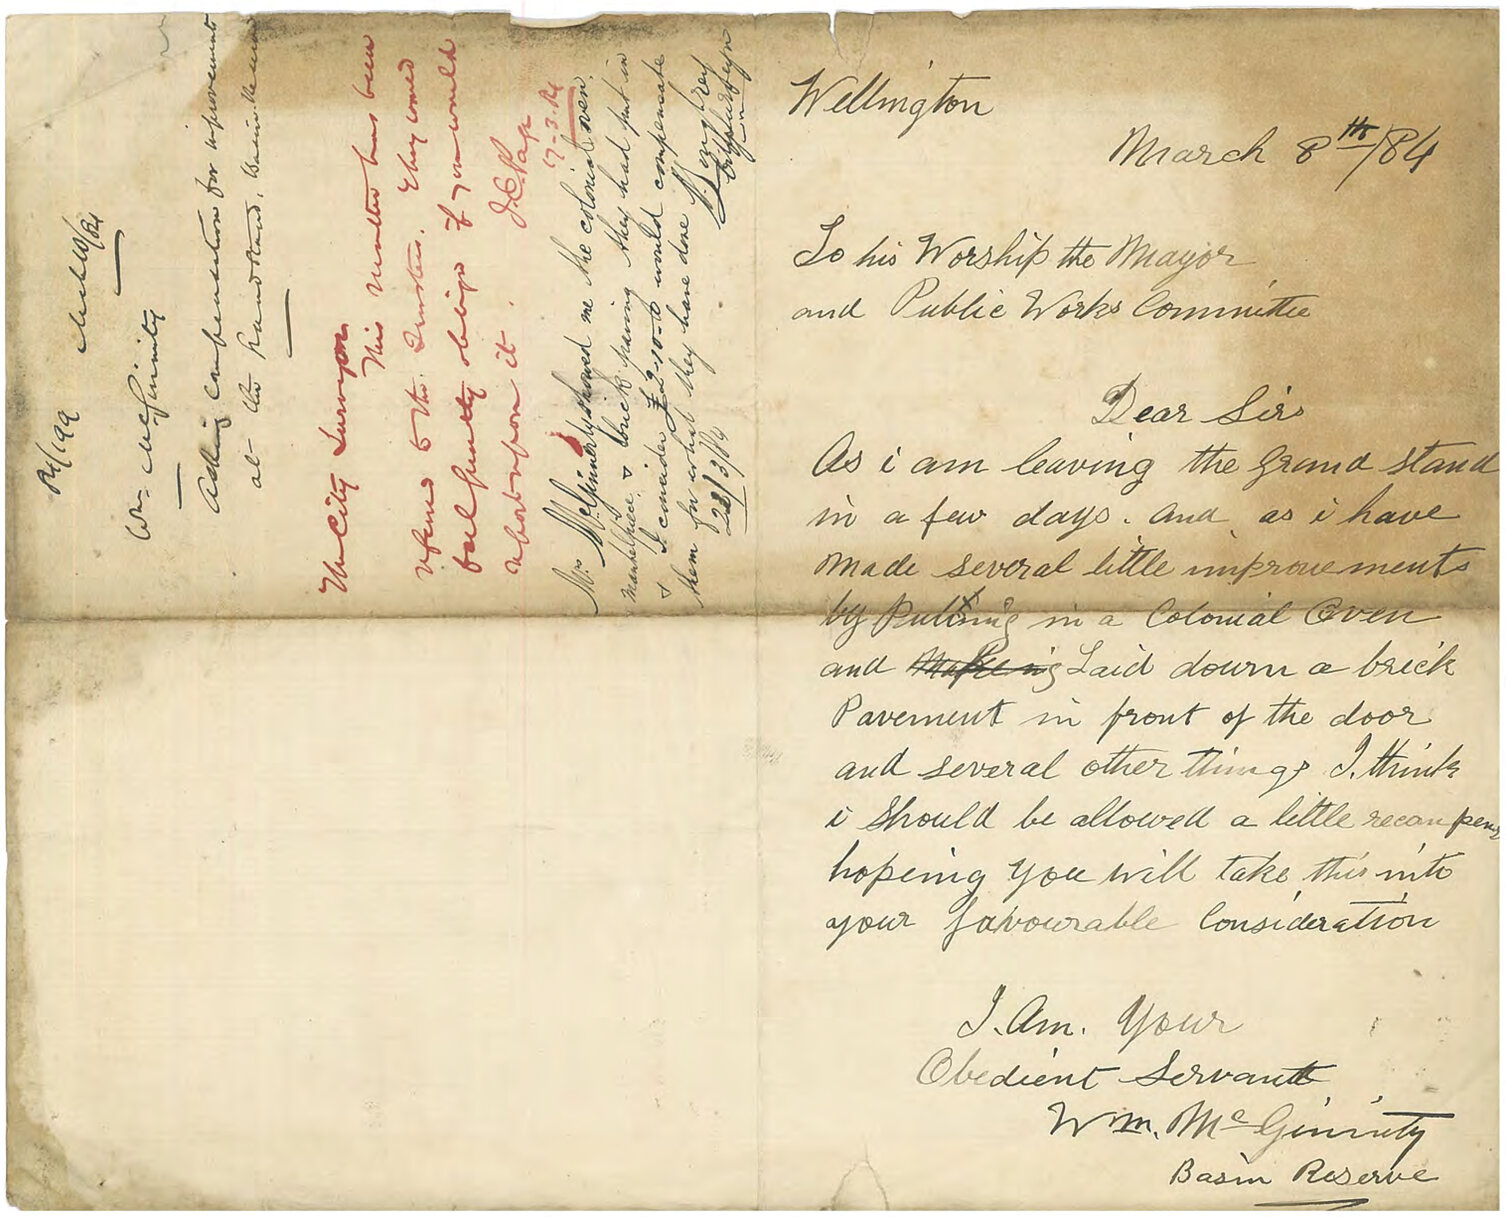 Wellington
March 8th/84
To his Worship the Mayor
and Public Works Committee
Dear Sir
As i am leaving the Grand stand
in a few days. And as i have
made several little improvements
by Putting in a Colonial Oven
and Laid down a brick
Pavement in front of the door
and several other things I. think
i should be allowed a little recompens
hopeing you will take this into
your favourable Consideration
I. Am. Your
Obedient Servant
Wm. McGinnity
Basin Reserve
84/199
Wm. McGinnity
Asking compensation for improvements
at the Grand Stand, Basin Reserve
The City Surveyor
This matter has been
refered to the Trustees. They would
feel greatly obliged if you would
report upon it.
J. C. Page
17-3-84
Mr McGinnerty showed me the colonial oven,
Mantelpiece & brick paving they had put in
& I consider £2-10-0 would compensate
them for what they have done
23/3/84
City Surveyor